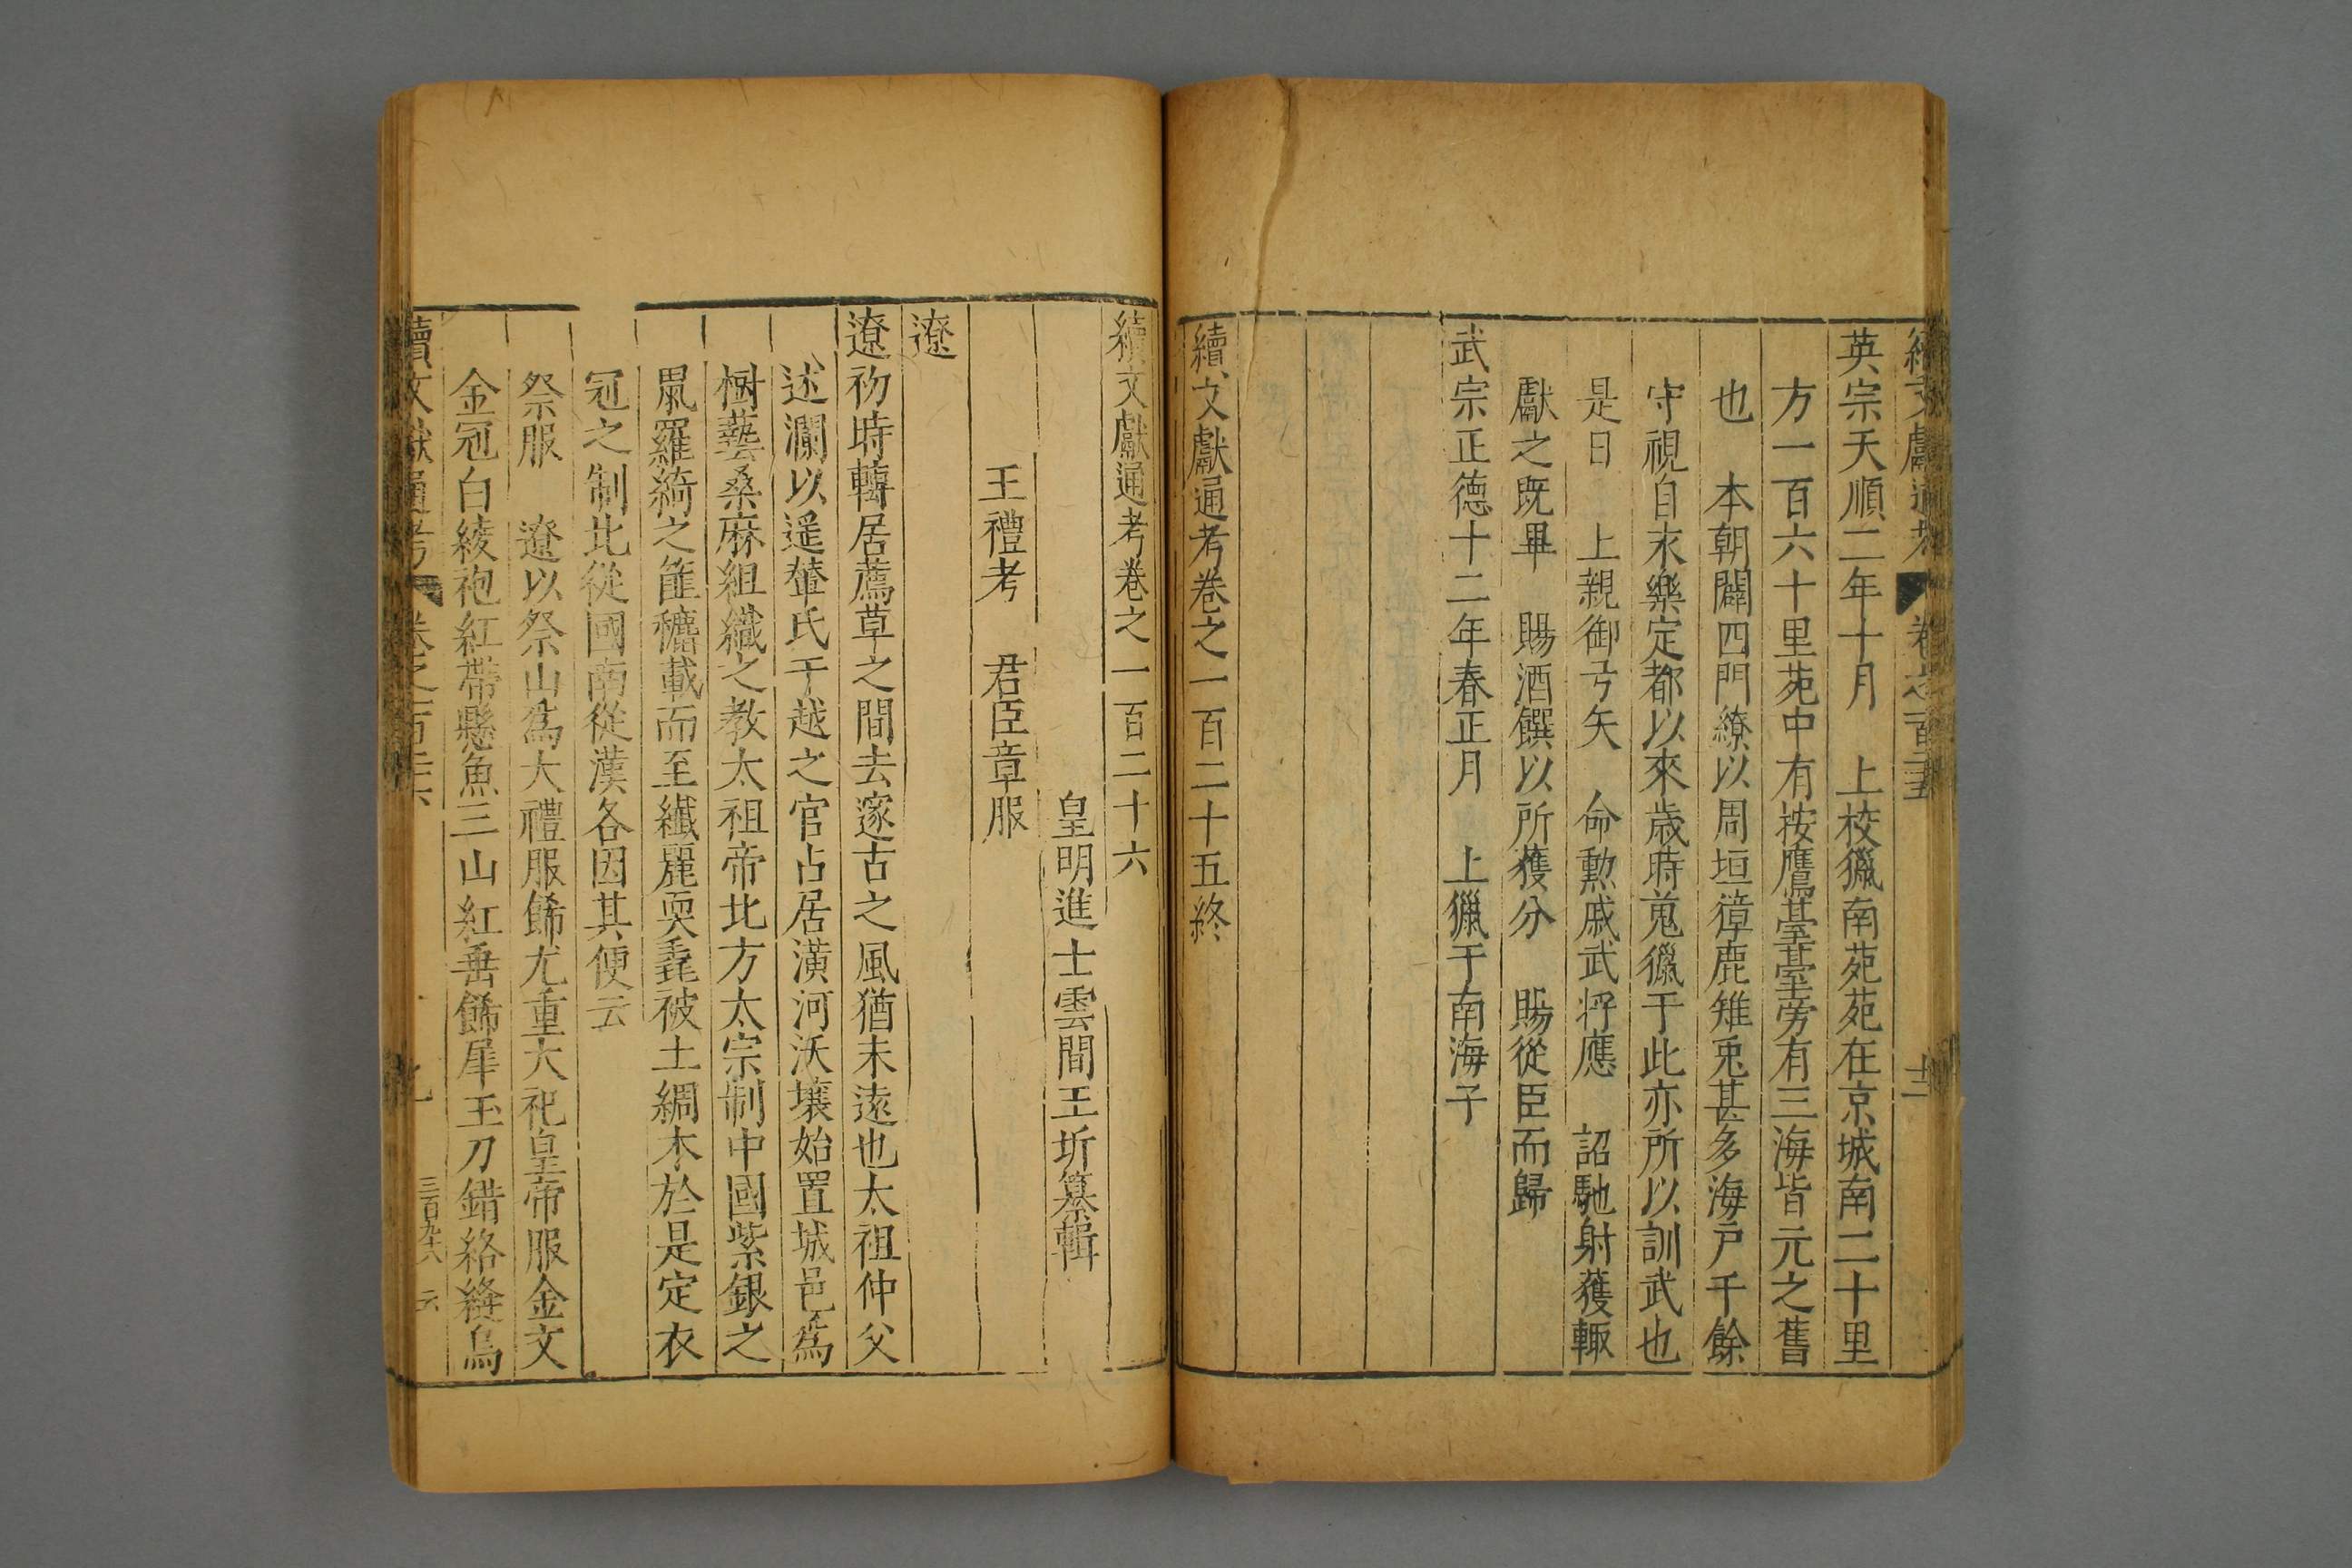 續文獻通考 卷之一百二十五 十二
英宗天順二年十月 上校獵南苑苑在京城南二十里
方一百六十里苑中有按鷹臺臺旁有三海皆元之舊
也 本朝闢四門繚以周垣獐鹿雉兎甚多海户千餘
守視自永樂定都以來歲時蒐獵于此亦所以訓武也
是日 上親御弓矢 命勲戚武將應 詔馳射獲輙
獻之既畢 賜酒饌以所獲分 賜從臣而歸
武宗正德十二年春正月 上獵于南海子
續文獻通考卷之一百二十五終
續文獻通考卷之一百二十六
皇明進士雲間王圻纂輯
王禮考 君臣章服
遼
遼初時轉居薦草之間去邃古之風猶未遠也太祖仲父
述瀾以遥輦氏于越之官占居潢河沃壤始置城邑爲
樹藝桑麻組織之教太祖帝北方太宗制中國紫銀之
鼠羅綺之篚穲載而至纎麗耎毳被土綢木於是定衣
冠之制北從國南從漢各因其便云
祭服 遼以祭山爲大禮服餙尤重大祀皇帝服金文
金冠白綾袍紅帶懸魚三山紅垂餙犀玉刀錯絡縫烏
續文獻通考 卷之一百二十六 一 三百九十八